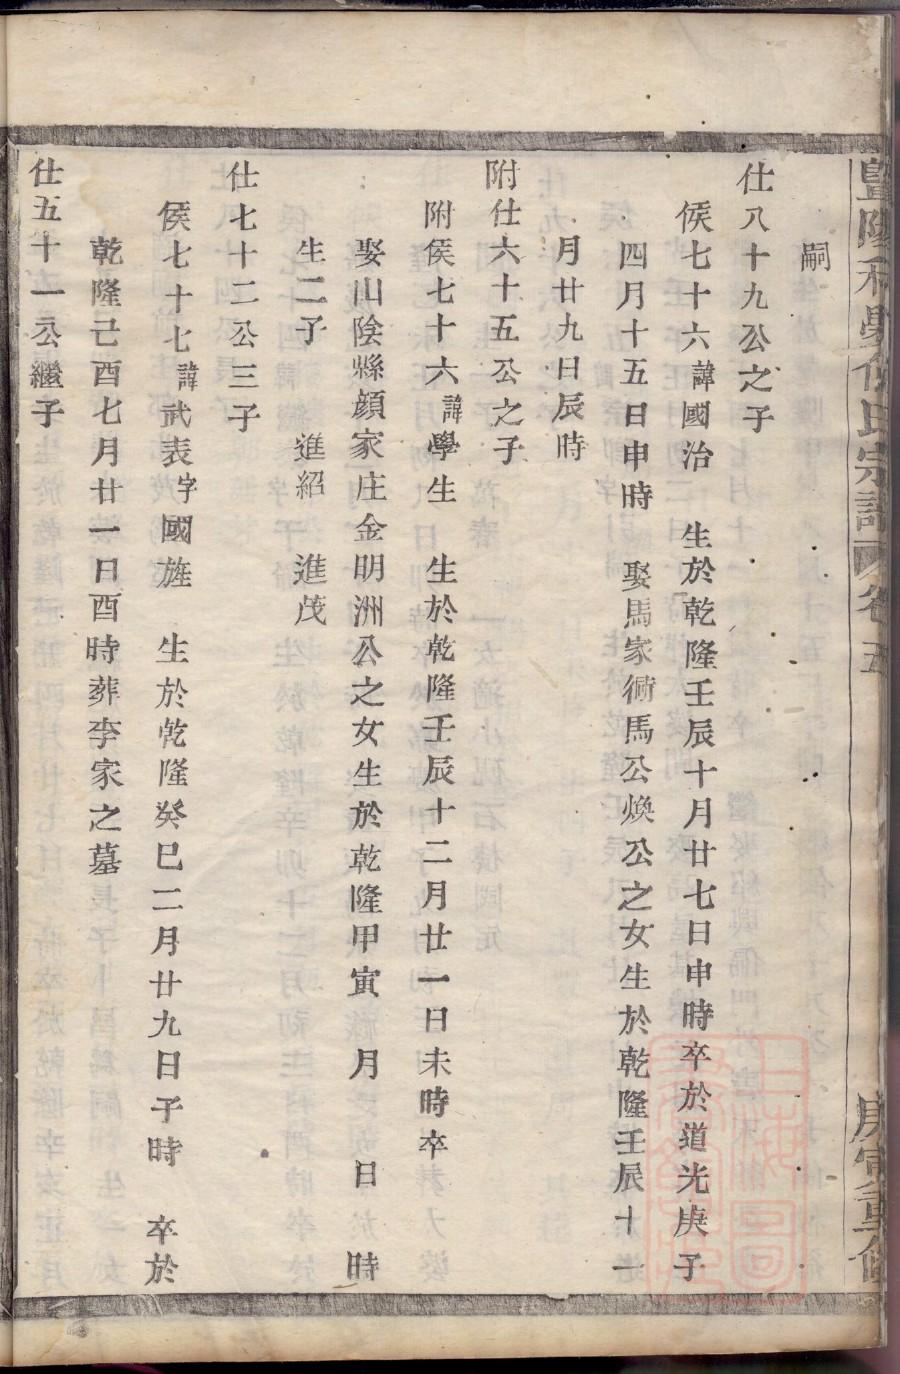 嗣
仕八十九公之子
侯七十六諱國治 生於乾隆壬辰十月廿七日申時卒於道光庚子
四月十五日申時 娶馬家衖馬公煥公之女生於乾隆壬辰十一
月廿九日辰時
附仕六十五公之子
附侯七十六諱學生 生於乾隆壬辰十二月廿一日未時卒
娶山陰縣顔家庄金明洲公之女生於乾隆甲寅 月 日 時
生二子 進紹 進茂
仕七十二公三子
侯七十七諱武表字國旌 生於乾隆癸巳二月廿九日子時 卒於
乾隆己酉七月廿一日酉時葬李家之墓
仕五十一公繼子